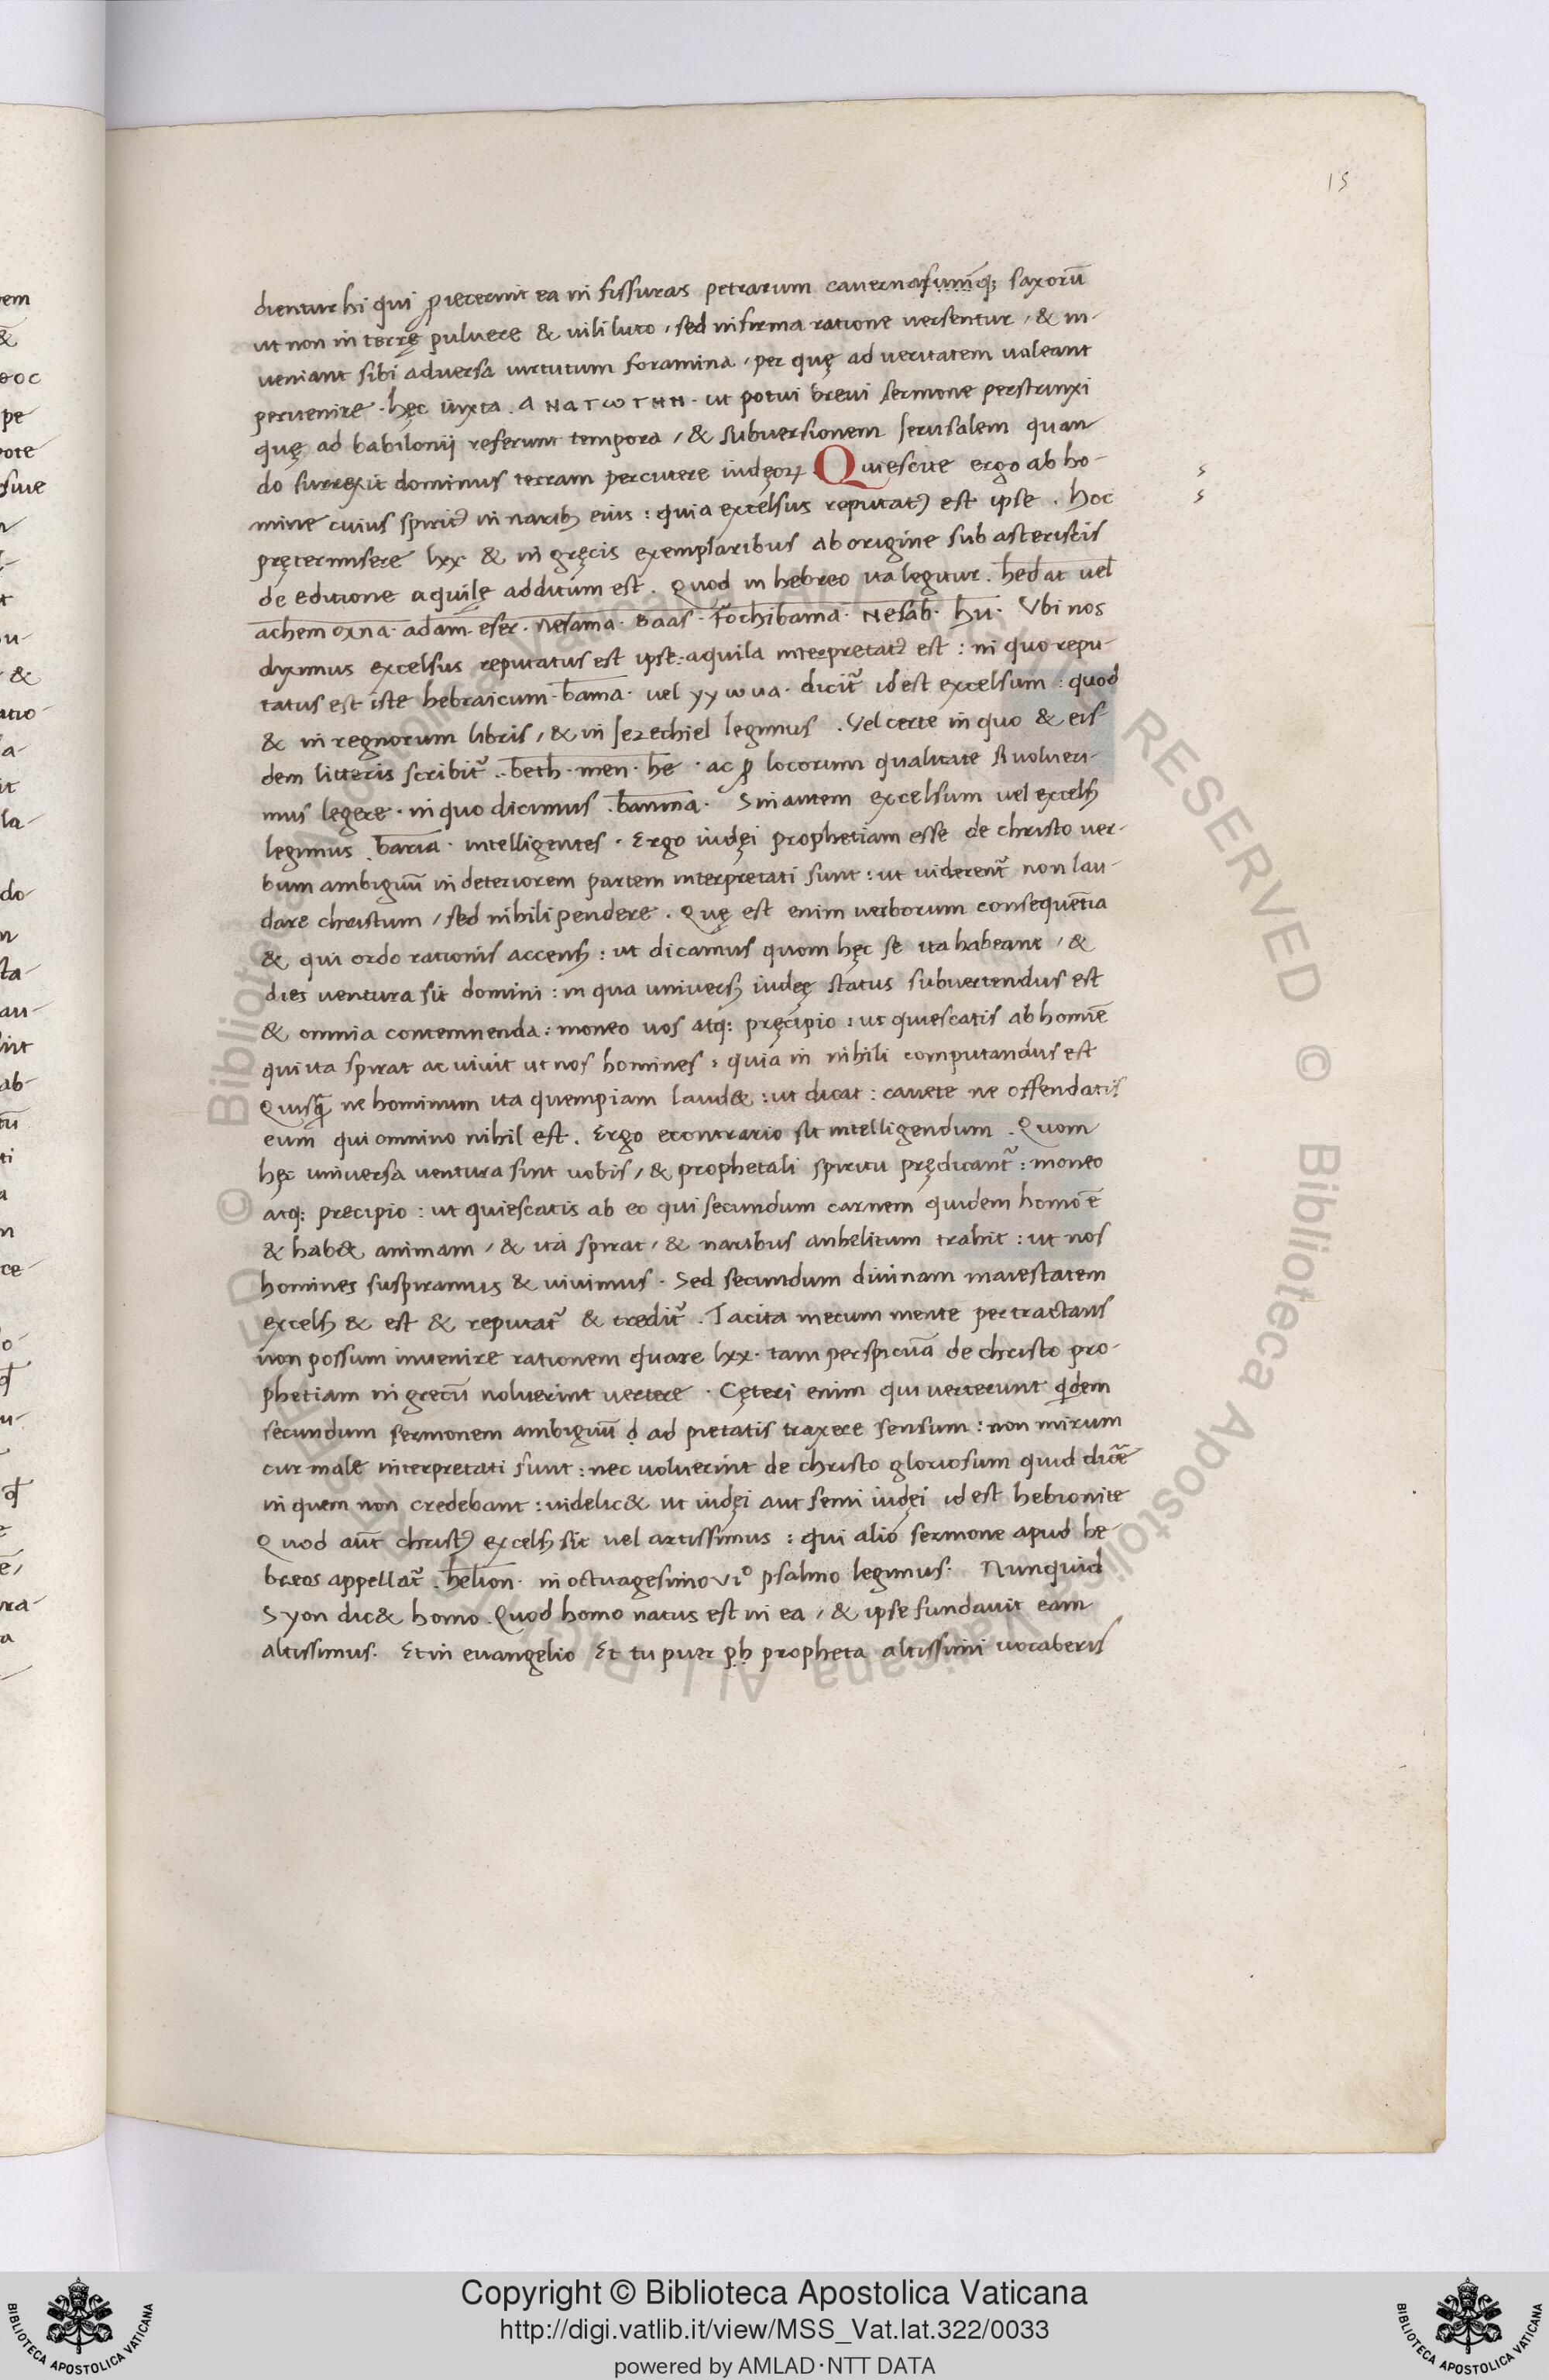 15
dientur hi qui proiecerint ea in fissuras petrarum cauernasumq; saxorū
ut non in terrę puluere & uili luto / sed in firma ratione uersentur / & in-
ueniant sibi aduersa uirtutum foramina / per quę ad ueritatem ualeant
peruenire . hęc iuxta . ANAΓωΓHN . ut potui breui sermone perstrinxi
quę ad babilonij referunt tempora / & subuersionem Ierusalem quan
do surrexit dominus terram percutere iudęoꝝ . Quiescite ergo ab ho-
mine cuius spiritꝰ in naribꝫ eius : quia excelsus reputatꝰ est ipse . hoc
prętermisere lxx & in gręcis exemplaribus ab origine sub asteriscis
de editione aquilę additum est . Quod in hebreo ita legitur . hedat uel
achem oxna . adam . eser . nesama . Baas . fochibama . Nesab . hu . Vbi nos
diximus excelsus reputatus est ipse : aquila interpretatꝰ est : in quo repu-
tatus est iste hebraicum . bama . uel yywua . dicit᷑ id est excelsum : quod
& in regnorum libris / & in Iezechiel legimus . Vel certe in quo & eis-
dem litteris scribit᷑ . beth . men . he . ac ꝓ locorum qualitate si uolueri-
mus legere . in quo dicimus . bamma . Sin autem excelsum uel excelsꝫ
legimus . bama . intelligentes . Ergo iudęi prophetiam esse de christo uer-
bum ambiguū in deteriorem partem interpretati sunt : ut uiderent᷑ non lau-
dare christum / sed nihili pendere . Quę est enim uerborum consequētia
& qui ordo rationis accensꝫ : ut dicamus quom hęc se ita habeant / &
dies uentura sit domini : in qua uniuersꝫ iudeę status subuertendus est
& omnia contemnenda : moneo uos atq: pręcipio : ut quiescatis ab homīe
qui ita spirat ac uiuit ut nos homines : quia in nihili computandus est
Quisꝗ̄ ne hominum ita quempiam laud& : ut dicat : cauete ne offendatis
eum qui omnino nihil est . Ergo econtrario sit intelligendum . Quom
hęc uniuersa uentura sint uobis / & prophetali spiritu prędicant᷑ : moneo
atq: precipio : ut quiescatis ab eo qui secundum carnem quidem homo ē
& hab& animam / & ita spirat / & naribus anhelitum trahit : ut nos
homines suspiramus & uiuimus . Sed secundum diuinam maiestatem
excelsꝫ & est & reputat᷑ & credit᷑ . Tacita mecum mente pertractans
non possum inuenire rationem quare lxx . tam perspicuā de christo pro-
phetiam in grecū noluerint uertere . Cęteri enim qui uerterunt qͥdem
secundum sermonem ambiguū ad pietatis traxere sensum : non mirum
cur male interpretati sunt : nec uoluerint de christo gloriosum quid dicē
in quem non credebant : uidelic& ut iudęi aut semi iudęi id est hebionite
Quod aūt christꝰ excelsꝫ sit uel artissimus : qui alio sermone apud he-
breos appellat᷑ . helion . in octuagesimo vi° psalmo legimus . Nunquid
Syon dic& homo . Quod homo natus est in ea / & ipse fundauit eam
altissimus . Et in euangelio Et tu puer ph propheta altissimi uocaberis
s
s
Copyright © Biblioteca Apostolica Vaticana
http://digi.vatlib.it/view/MSS_Vat.lat.322/0033
powered by AMLAD·NTT DATA
BIBLIOTECA APOSTOLICA VATICANA
BIBLIOTECA APOSTOLICA VATICANA